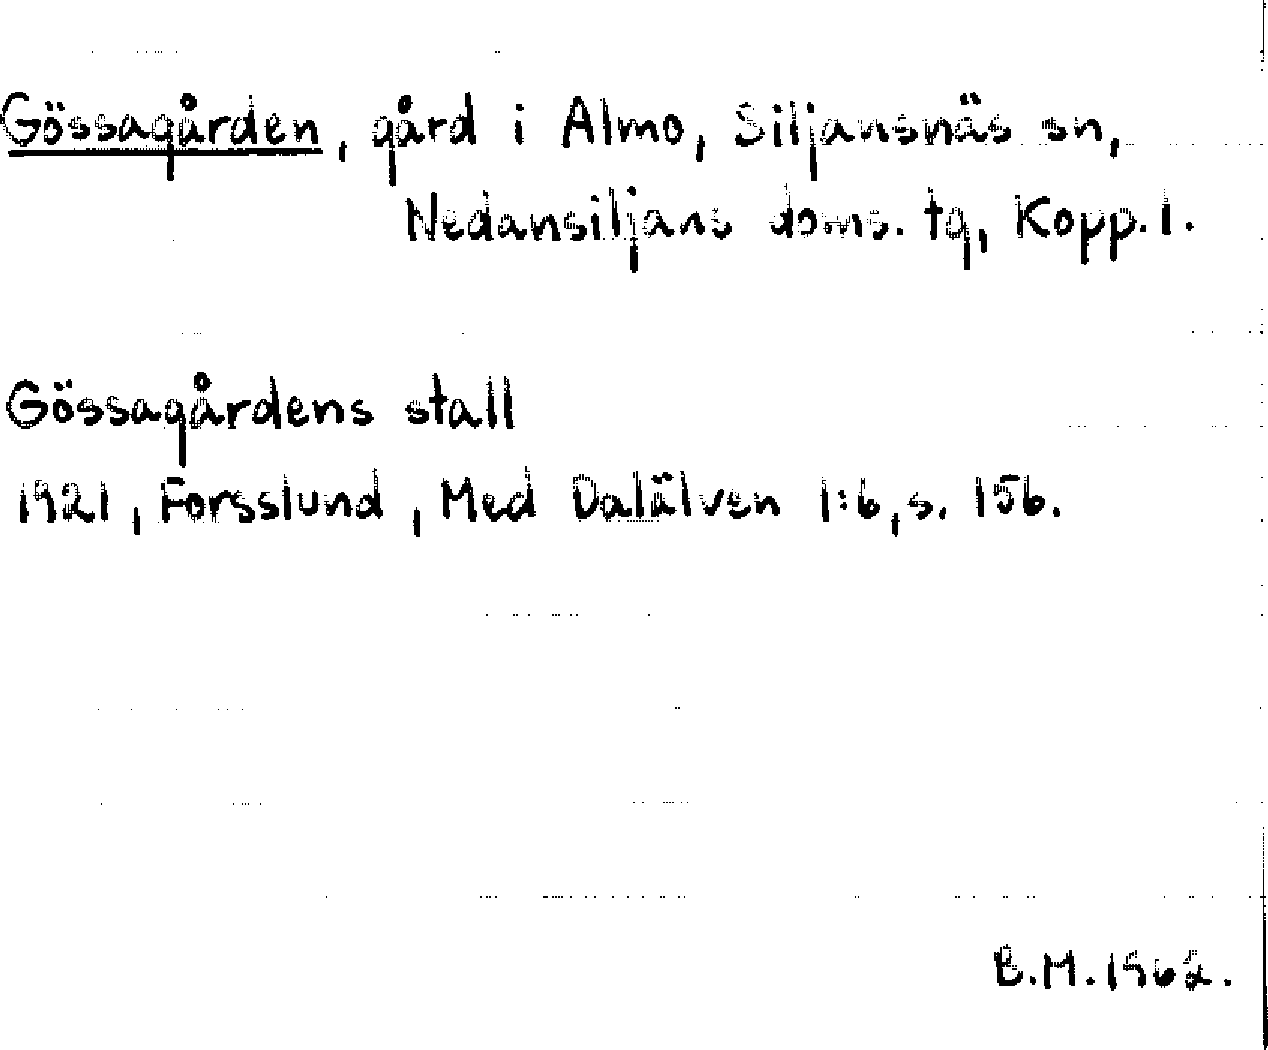 Gössagården, gård i Almo, Siljansnäs sn,
Nedansiljans doms. tg, Kopp. l.
Gössagårdens stall
1921, Forsslund, Med Dalälven 1:6, s. 156.
B.M. 1962.